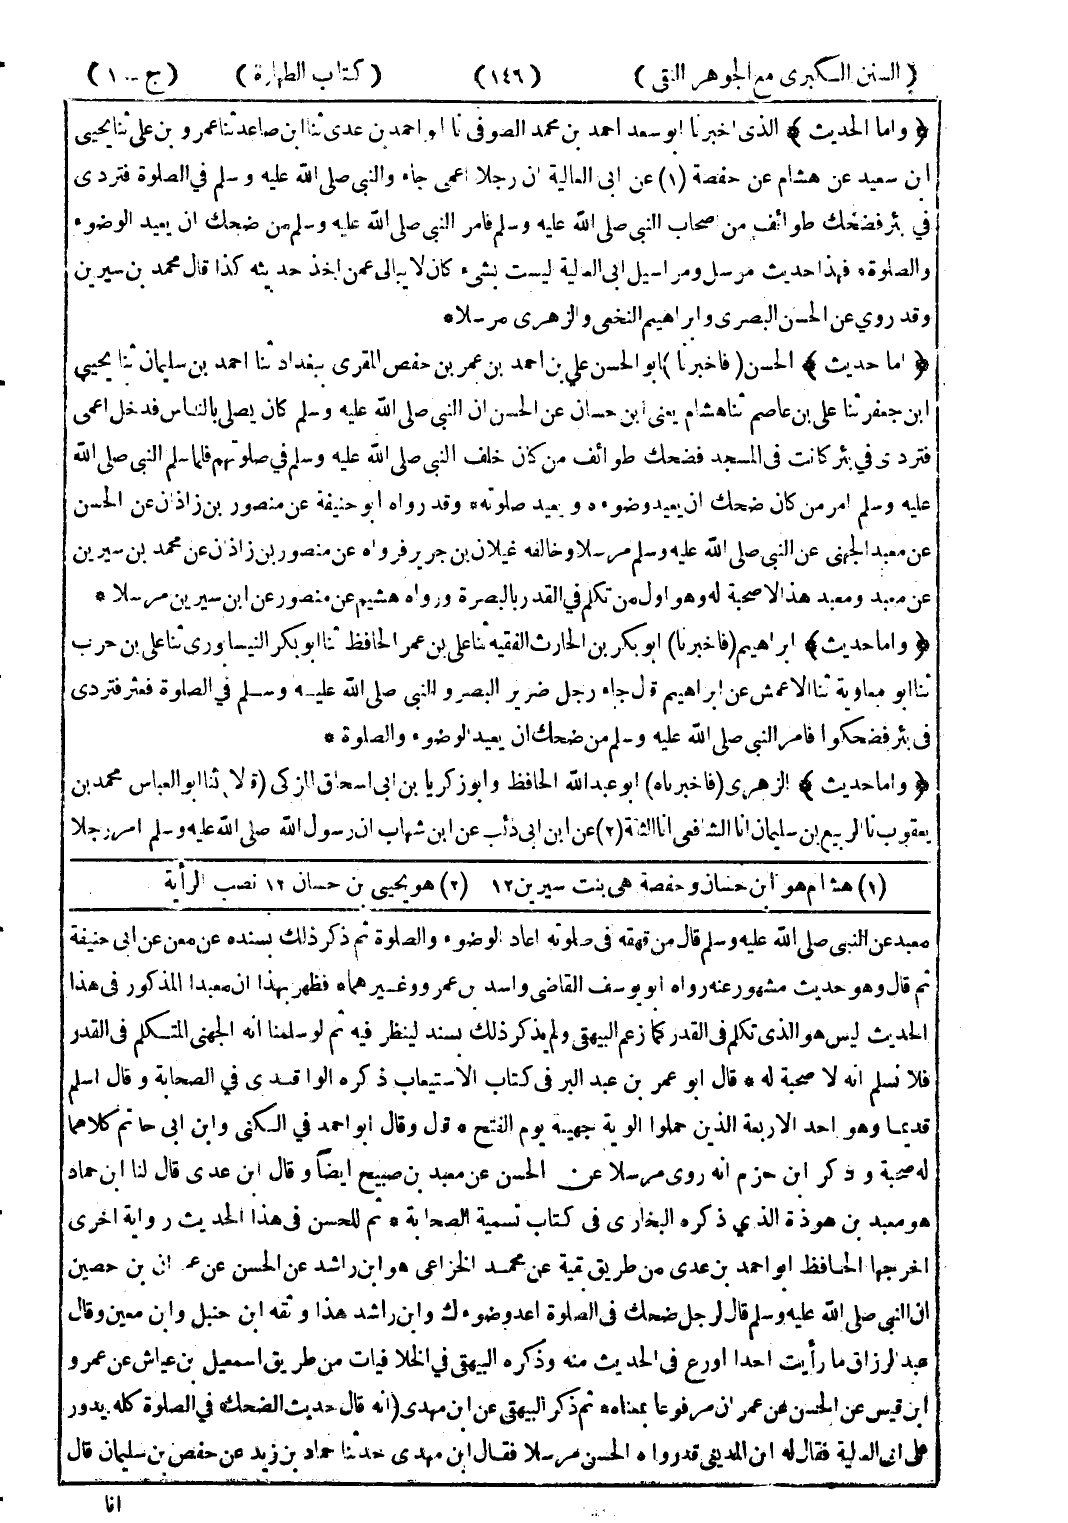 ( السنن الكبرى مع الجوهر النقى ) (١٤٦) ( كتاب الطهارة ) ( ج - ١ )
﴿ واما الحديث ﴾ الذى اخبرنا ابو سعد احمد بن محمد الصوفى نا ابو احمد بن عدى ثنا ابن صاعد ثنا عمرو بن على ثنا يحيى
ابن سعيد عن هشام عن حفصة (١) عن ابى العالية ان رجلا اعمى جاء والنبى صلى الله عليه وسلم فى الصلوة فتردى
في بئر فضحك طوائف من اصحاب النبى صلى الله عليه وسلم فامر النبى صلى الله عليه وسلم من ضحك ان يعيد الوضوء
والصلوة * فهذا حديث مرسل ومراسيل ابى العالية ليست بشىء كان لا يبالى عمن اخذ حديثه كذا قال محمد بن سيرين
وقد روي عن الحسن البصرى وابراهيم النخعى والزهرى مرسلا *
﴿ اما حديث ﴾ الحسن ( فاخبرنا ) ابو الحسن علي بن احمد بن عمر بن حفص المقرى ببغداد ثنا احمد بن سليمان ثنا يحيي
ابن جعفر ثنا على بن عاصم ثنا هشام يعنى ابن حسان عن الحسن ان النبى صلى الله عليه وسلم كان يصلى بالناس فدخل اعمى
فتردى في بئر كانت فى المسجد فضحك طوائف من كان خلف النبى صلى الله عليه وسلم في صلوتهم فلما سلم النبى صلى الله
عليه وسلم امر من كان ضحك ان يعيد وضوءه ويعيد صلوته * وقد رواه ابو حنيفة عن منصور بن زاذان عن الحسن
عن معبد الجهنى عن النبى صلى الله عليه وسلم مرسلا وخالفه غيلان بن جرير فرواه عن منصور بن زاذان عن محمد بن سيرين
عن معبد ومعبد هذا لا صحبة له وهو اول من تكلم في القدر بالبصرة ورواه هشيم عن منصور عن ابن سيرين مرسلا *
﴿ واما حديث ﴾ ابراهيم (فاخبرنا) ابو بكر بن الحارث الفقيه ثنا على بن عمر الحافظ ثنا ابو بكر النيسابورى ثنا على بن حرب
ثنا ابو معاوية ثنا الاعمش عن ابراهيم قال جاء رجل ضرير البصر والنبى صلى الله عليه وسلم في الصلوة فعثر فتردى
فى بئر فضحكوا فامر النبى صلى الله عليه وسلم من ضحك ان يعيد الوضوء والصلوة *
﴿ واما حديث ﴾ الزهرى (فاخبرناه) ابو عبد الله الحافظ وابو زكريا بن ابى اسحاق المزكى (قالا) ثنا ابو العباس محمد بن
يعقوب نا الربيع بن سليمان انا الشافعى انا الثقة (٢) عن ابن ابى ذئب عن ابن شهاب ان رسول الله صلى الله عليه وسلم امر رجلا
(١) هشام هو ابن حسان وحفصة هى بنت سيرين ١٢ (٢) هو يحيى بن حسان ١٢ نصب الرأية
معبد عن النبى صلى الله عليه وسلم قال من قهقه فى صلوته اعاد الوضوء والصلوة ثم ذكر ذلك بسنده عن معن عن ابى حنيفة
ثم قال وهو حديث مشهور عنه رواه ابو يوسف القاضى واسد بن عمرو وغيرهما * فظهر بهذا ان معبدا المذكور فى هذا
الحديث ليس هو الذى تكلم فى القدر كما زعم البيهقى ولم يذكر ذلك بسند لينظر فيه ثم لو سلمنا انه الجهنى المتكلم فى القدر
فلا نسلم انه لا صحبة له * قال ابو عمر بن عبد البر فى كتاب الاستيعاب ذكره الواقدى في الصحابة وقال اسلم
قديما وهو احد الاربعة الذين حملوا الوية جهينة يوم الفتح * قال وقال ابو احمد في الكنى وابن ابى حاتم كلاهما
له صحبة وذكر ابن حزم انه روى مرسلا عن الحسن عن معبد بن صبيح ايضا وقال ابن عدى قال لنا ابن حماد
هو معبد بن هوذة الذي ذكره البخارى فى كتاب تسمية الصحابة * ثم للحسن فى هذا الحديث رواية اخرى
اخرجها الحافظ ابو احمد بن عدى من طريق بقية عن محمد الخزاعى هو ابن راشد عن الحسن عن عمران بن حصين
ان النبى صلى الله عليه وسلم قال لرجل ضحك فى الصلوة اعد وضوءك وابن راشد هذا وثقه ابن حنبل وابن معين وقال
عبد الرزاق ما رأيت احدا اورع فى الحديث منه وذكره البيهقى في الخلافيات من طريق اسمعيل بن عياش عن عمرو
ابن قيس عن الحسن عن عمران مرفوعا بمعناه * ثم ذكر البيهقى عن ابن مهدى (انه قال حديث الضحك في الصلوة كله يدور
على ابى العالية فقال له ابن المدينى قد رواه الحسن مرسلا فقال ابن مهدى حدثنا حماد بن زيد عن حفص بن سليمان قال
انا